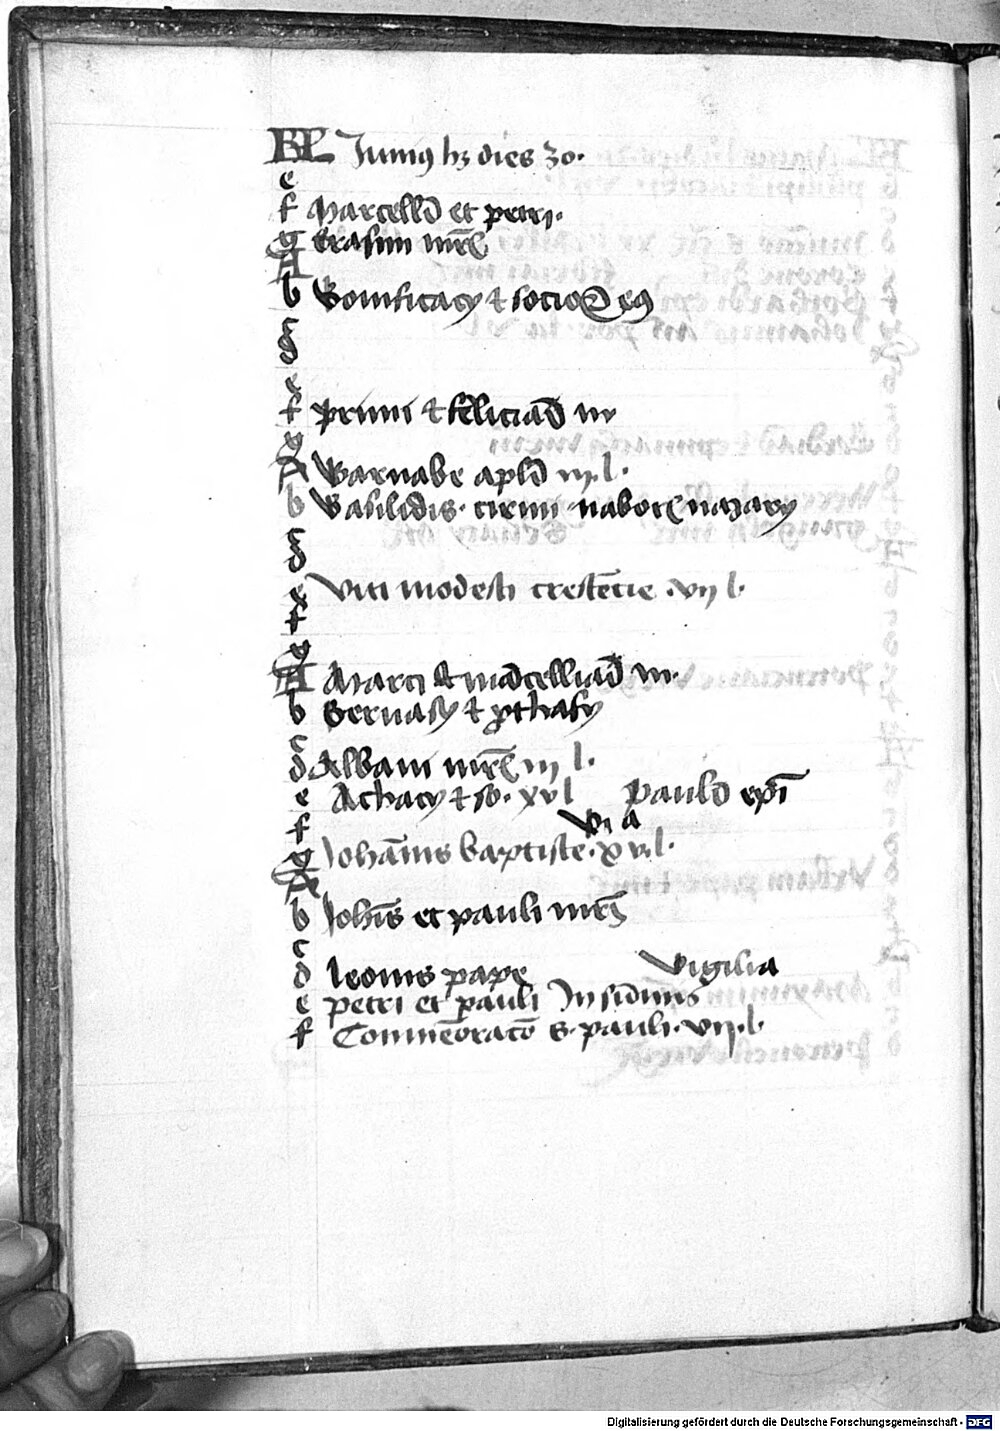 KL Junius hz dies 30.
e
f Marcelli et petri.
g Erasmi mrs
A
b Bonifacy et socior eius
c
d
e
f Primi et feliciani m
g
A Barnabe apli iij. l.
b Basilidis. cirini. naboris nazary
c
d
e Viti modesti crestētie .vij l.
f
g
A Marci et marcelliani m.
b Geruasy et prthasy
c
d Albani mrs iij l.
e Achacy et so. xv l Paulī epī
f Vi a
g Johānis baptiste. x v. l.
A
b Johīs et pauli mrs
c
d leonis pape vigilia
e petri et pauli In sūmis
f Commēoratō s. pauli. vij. l.
Digitalisierung gefördert durch die Deutsche Forschungsgemeinschaft - DFG